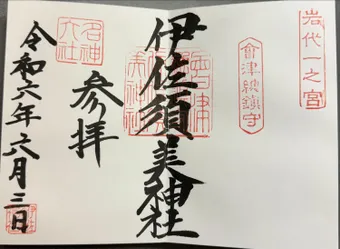 岩代一之宮
會津總鎮守
伊佐須美神社
名神大社
参拝
令和六年六月三日